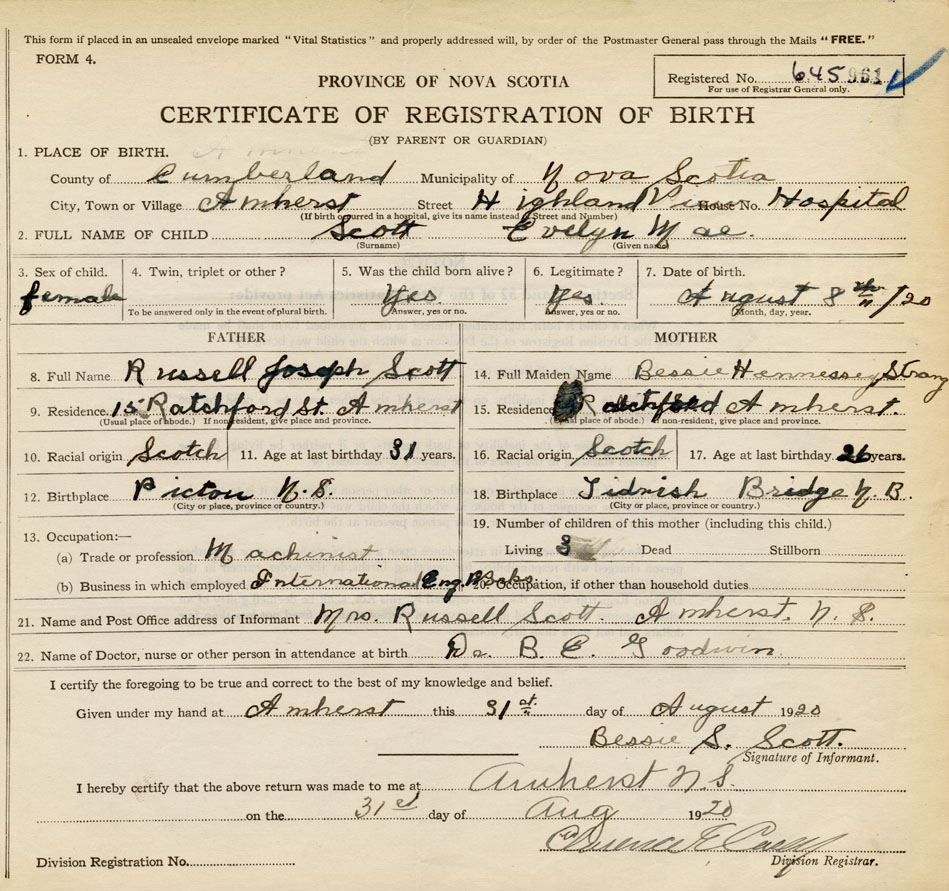 This form if placed in an unsealed envelope marked "Vital Statistics" and properly addressed will, by order of the Postmaster General pass through the Mails "FREE."
FORM 4.
Registered No. 645 961
For use of Registrar General only.
PROVINCE OF NOVA SCOTIA
CERTIFICATE OF REGISTRATION OF BIRTH
(BY PARENT OR GUARDIAN)
1. PLACE OF BIRTH.
County of Cumberland Municipality of Nova Scotia
City, Town or Village Amherst Street Highland View House No. Hospital
(If birth occurred in a hospital, give its name instead of Street and Number)
2. FULL NAME OF CHILD Scott Evelyn Mae.
(Surname) (Given name)
3. Sex of child. 4. Twin, triplet or other? 5. Was the child born alive? 6. Legitimate? 7. Date of birth.
female Yes Yes. August 8th /20
To be answered only in the event of plural birth. Answer, yes or no. Answer, yes or no. Month, day, year.
FATHER MOTHER
8. Full Name Russell Joseph Scott 14. Full Maiden Name Bessie Hennessey Strang
9. Residence. 15 Ratchford St. Amherst 15. Residence Ratchford Amherst.
(Usual place of abode.) If non-resident, give place and province. (Usual place of abode.) If non-resident, give place and province.
10. Racial origin. Scotch 11. Age at last birthday. 31 years. 16. Racial origin. Scotch 17. Age at last birthday. 26 years.
12. Birthplace Pictou N.S. 18. Birthplace Tidnish Bridge N.B.
(City or place, province or country.) (City or place, province or country.)
13. Occupation:— 19. Number of children of this mother (including this child.)
(a) Trade or profession Machinist Living 3 Dead Stillborn
(b) Business in which employed International Eng. Works 20. Occupation, if other than household duties
21. Name and Post Office address of Informant Mrs. Russell Scott. Amherst, N.S.
22. Name of Doctor, nurse or other person in attendance at birth Dr. B. E. Goodwin
I certify the foregoing to be true and correct to the best of my knowledge and belief.
Given under my hand at Amherst this 31st day of August 1920
Bessie S. Scott.
Signature of Informant.
I hereby certify that the above return was made to me at Amherst N.S.
on the 31st day of Aug 1920
Division Registration No. Division Registrar.